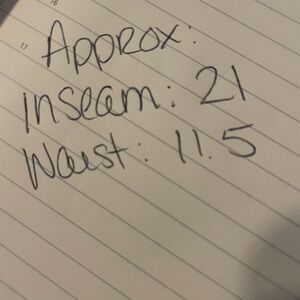 16
17
Approx:
inseam: 21
Waist: 11.5